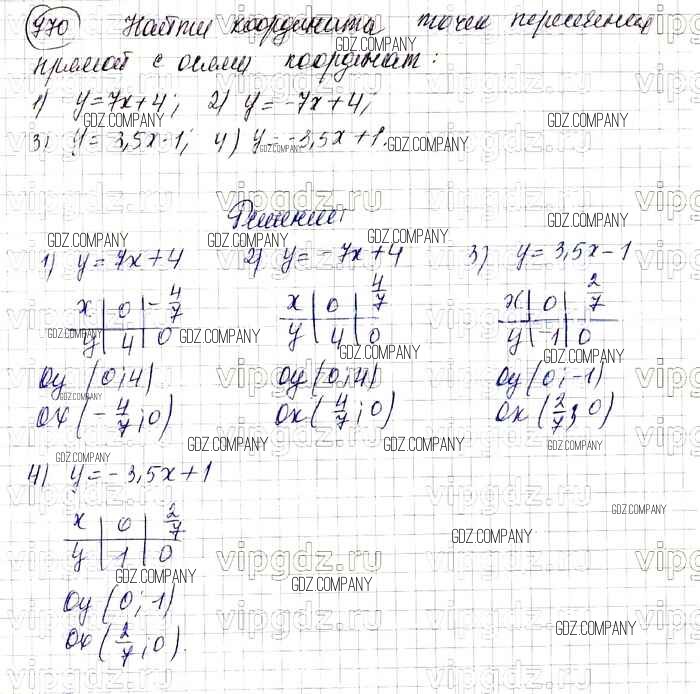 970 Найти координаты точек пересечения
прямой с осями координат:
1) y = 7x + 4; 2) y = -7x + 4;
3) y = 3,5x - 1; 4) y = -3,5x + 1.
Решение:
1) y = 7x + 4 2) y = -7x + 4 3) y = 3,5x - 1
x | 0 | -4/7 x | 0 | 4/7 x | 0 | 2/7
y | 4 | 0 y | 4 | 0 y | -1 | 0
Oy (0; 4) Oy (0; 4) Oy (0; -1)
Ox (-4/7; 0) Ox (4/7; 0) Ox (2/7; 0)
4) y = -3,5x + 1
x | 0 | 2/7
y | 1 | 0
Oy (0; 1)
Ox (2/7; 0).
GDZ.COMPANY
vipgdz.ru